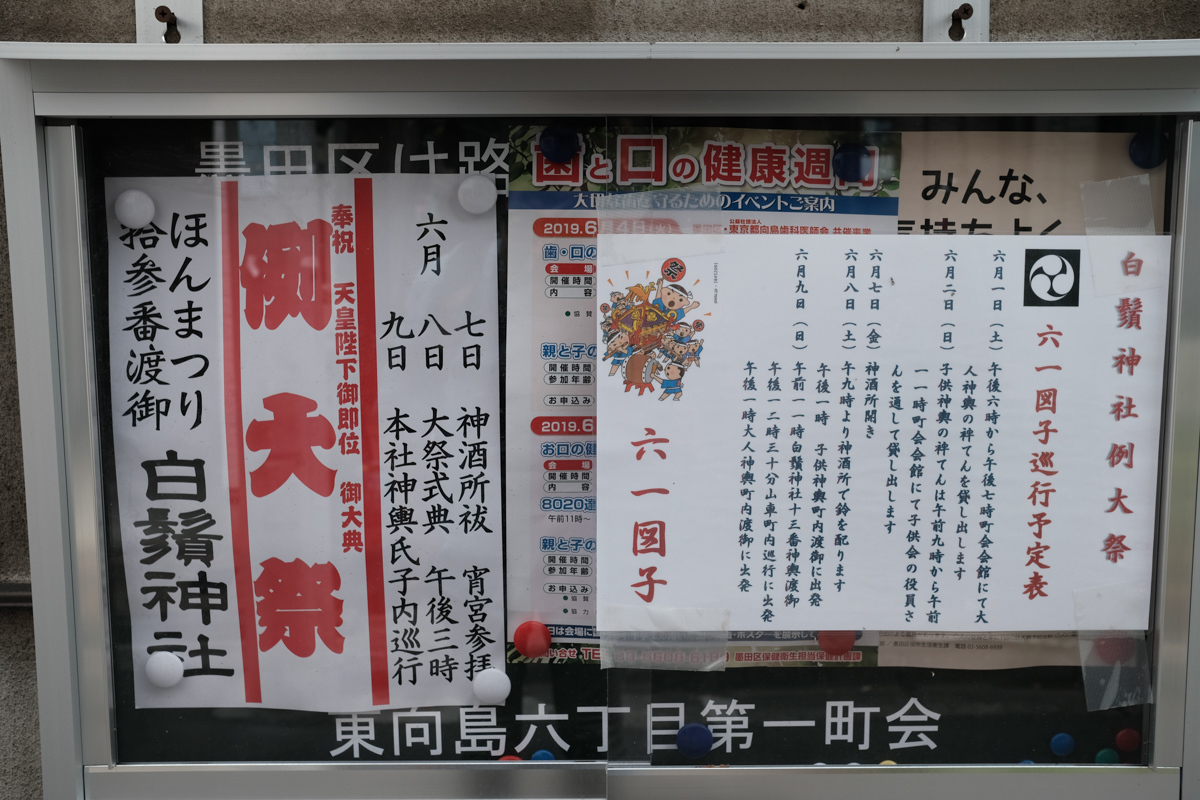 墨田区は路
東向島六丁目第一町会
六月
七日 神酒所祓 宵宮参拝
八日 大祭式典 午後三時
九日 本社神輿氏子内巡行
奉祝 天皇陛下御即位 御大典
例大祭
ほんまつり
拾参番渡御
白鬚神社
歯と口の健康週間
のイベントご案内
東京都向島歯科医師会 共催事業
2019.6月4日
歯・口の
会場
開催時間
内容
親と子の
開催時間
参加年齢
お申込み
2019.6
お口の健
会場
開催時間
内容
8020運
午前11時～
親と子の
開催時間
参加年齢
お申込み
墨田区保健衛生担当保健計画課
みんな、
気持ちよく
白鬚神社例大祭
六一図子巡行予定表
六月一日（土） 午後六時から午後七時町会会館にて大
人神輿の袢てんを貸し出します
六月二日（日） 子供神輿の袢てんは午前九時から午前
一一時町会会館にて子供会の役員さ
んを通して貸し出します
六月七日（金） 神酒所開き
六月八日（土） 午九時より神酒所で鈴を配ります
午後一時 子供神輿町内渡御に出発
六月九日（日） 午前一一時白鬚神社十三番神輿渡御
午後一二時三十分山車町内巡行に出発
午後一時大人神輿町内渡御に出発
祭
六一図子